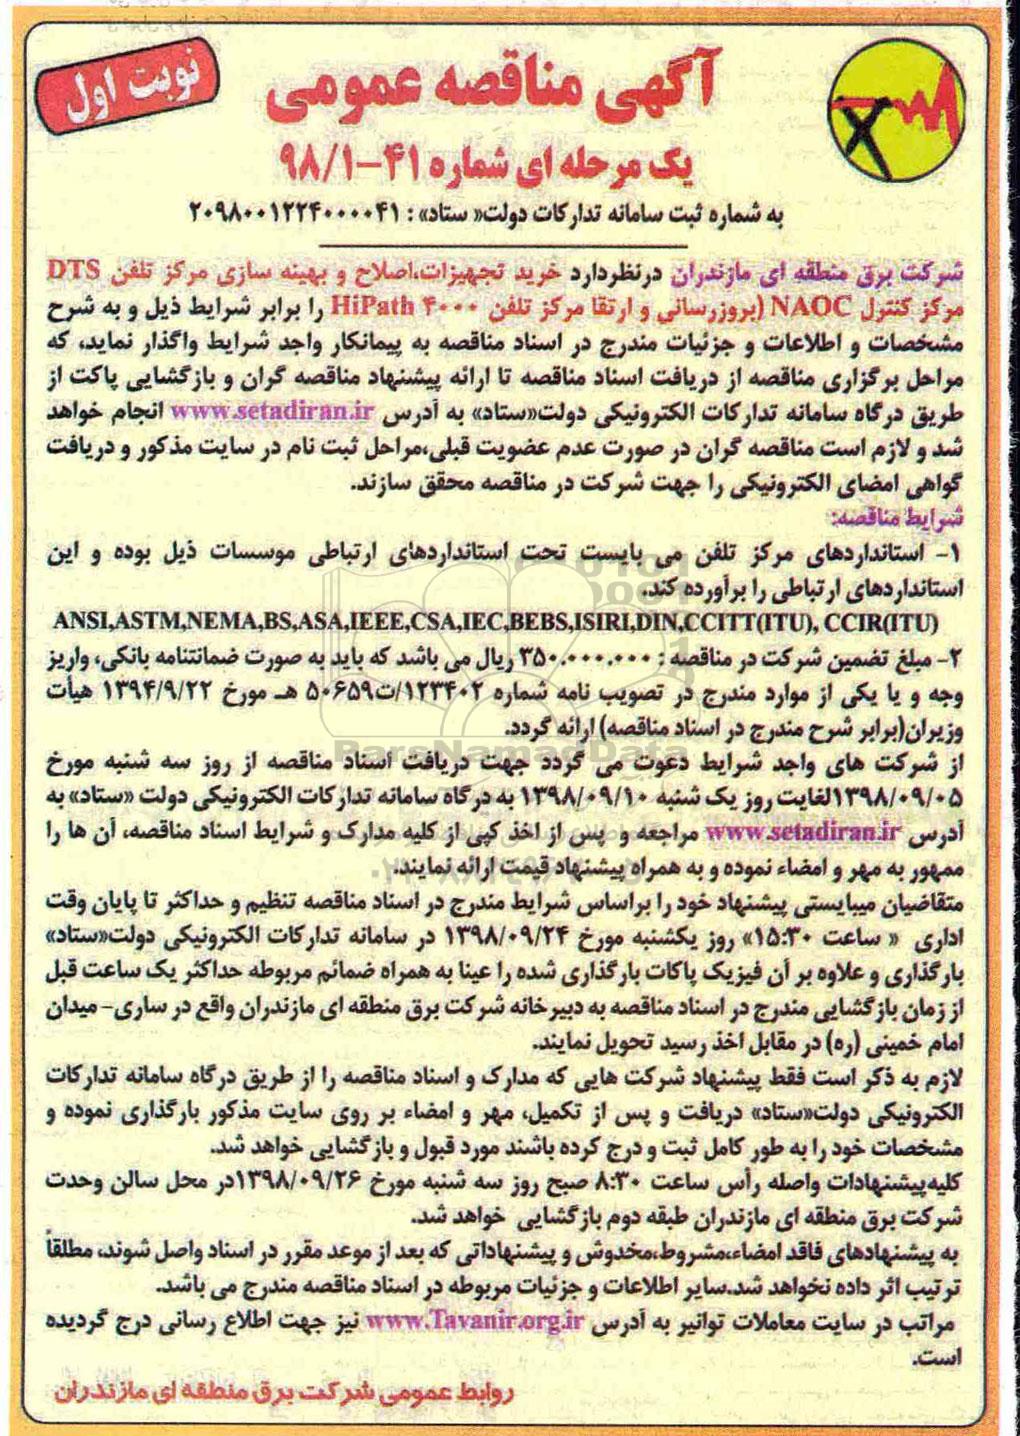 نوبت اول
آگهی مناقصه عمومی
یک مرحله ای شماره ۴۱-۹۸/۱
به شماره ثبت سامانه تدارکات دولت« ستاد» : ۲۰۹۸۰۰۱۲۲۴۰۰۰۰۴۱
شرکت برق منطقه ای مازندران درنظردارد خرید تجهیزات،اصلاح و بهینه سازی مرکز تلفن DTS
مرکز کنترل NAOC (بروزرسانی و ارتقا مرکز تلفن HiPath ۴۰۰۰ را برابر شرایط ذیل و به شرح
مشخصات و اطلاعات و جزئیات مندرج در اسناد مناقصه به پیمانکار واجد شرایط واگذار نماید، که
مراحل برگزاری مناقصه از دریافت اسناد مناقصه تا ارائه پیشنهاد مناقصه گران و بازگشایی پاکت از
طریق درگاه سامانه تدارکات الکترونیکی دولت«ستاد» به آدرس www.setadiran.ir انجام خواهد
شد و لازم است مناقصه گران در صورت عدم عضویت قبلی،مراحل ثبت نام در سایت مذکور و دریافت
گواهی امضای الکترونیکی را جهت شرکت در مناقصه محقق سازند.
شرایط مناقصه:
۱- استانداردهای مرکز تلفن می بایست تحت استانداردهای ارتباطی موسسات ذیل بوده و این
استانداردهای ارتباطی را برآورده کند.
ANSI,ASTM,NEMA,BS,ASA,IEEE,CSA,IEC,BEBS,ISIRI,DIN,CCITT(ITU), CCIR(ITU)
۲- مبلغ تضمین شرکت در مناقصه : ۳۵۰.۰۰۰.۰۰۰ ریال می باشد که باید به صورت ضمانتنامه بانکی، واریز
وجه و یا یکی از موارد مندرج در تصویب نامه شماره ۱۲۳۴۰۲/ت۵۰۶۵۹ هـ مورخ ۱۳۹۴/۹/۲۲ هیأت
وزیران(برابر شرح مندرج در اسناد مناقصه) ارائه گردد.
از شرکت های واجد شرایط دعوت می گردد جهت دریافت اسناد مناقصه از روز سه شنبه مورخ
۱۳۹۸/۰۹/۰۵لغایت روز یک شنبه ۱۳۹۸/۰۹/۱۰ به درگاه سامانه تدارکات الکترونیکی دولت «ستاد» به
آدرس www.setadiran.ir مراجعه و پس از اخذ کپی از کلیه مدارک و شرایط اسناد مناقصه، آن ها را
ممهور به مهر و امضاء نموده و به همراه پیشنهاد قیمت ارائه نمایند.
متقاضیان میبایستی پیشنهاد خود را براساس شرایط مندرج در اسناد مناقصه تنظیم و حداکثر تا پایان وقت
اداری « ساعت ۱۵:۳۰» روز یکشنبه مورخ ۱۳۹۸/۰۹/۲۴ در سامانه تدارکات الکترونیکی دولت«ستاد»
بارگذاری و علاوه بر آن فیزیک پاکات بارگذاری شده را عینا به همراه ضمائم مربوطه حداکثر یک ساعت قبل
از زمان بازگشایی مندرج در اسناد مناقصه به دبیرخانه شرکت برق منطقه ای مازندران واقع در ساری- میدان
امام خمینی (ره) در مقابل اخذ رسید تحویل نمایند.
لازم به ذکر است فقط پیشنهاد شرکت هایی که مدارک و اسناد مناقصه را از طریق درگاه سامانه تدارکات
الکترونیکی دولت«ستاد» دریافت و پس از تکمیل، مهر و امضاء بر روی سایت مذکور بارگذاری نموده و
مشخصات خود را به طور کامل ثبت و درج کرده باشند مورد قبول و بازگشایی خواهد شد.
کلیه‌پیشنهادات واصله رأس ساعت ۸:۳۰ صبح روز سه شنبه مورخ ۱۳۹۸/۰۹/۲۶در محل سالن وحدت
شرکت برق منطقه ای مازندران طبقه دوم بازگشایی خواهد شد.
به پیشنهادهای فاقد امضاء،مشروط،مخدوش و پیشنهاداتی که بعد از موعد مقرر در اسناد واصل شوند، مطلقاً
ترتیب اثر داده نخواهد شد.سایر اطلاعات و جزئیات مربوطه در اسناد مناقصه مندرج می باشد.
مراتب در سایت معاملات توانیر به آدرس www.Tavanir.org.ir نیز جهت اطلاع رسانی درج گردیده
است.
روابط عمومی شرکت برق منطقه ای مازندران
ParsNamadData